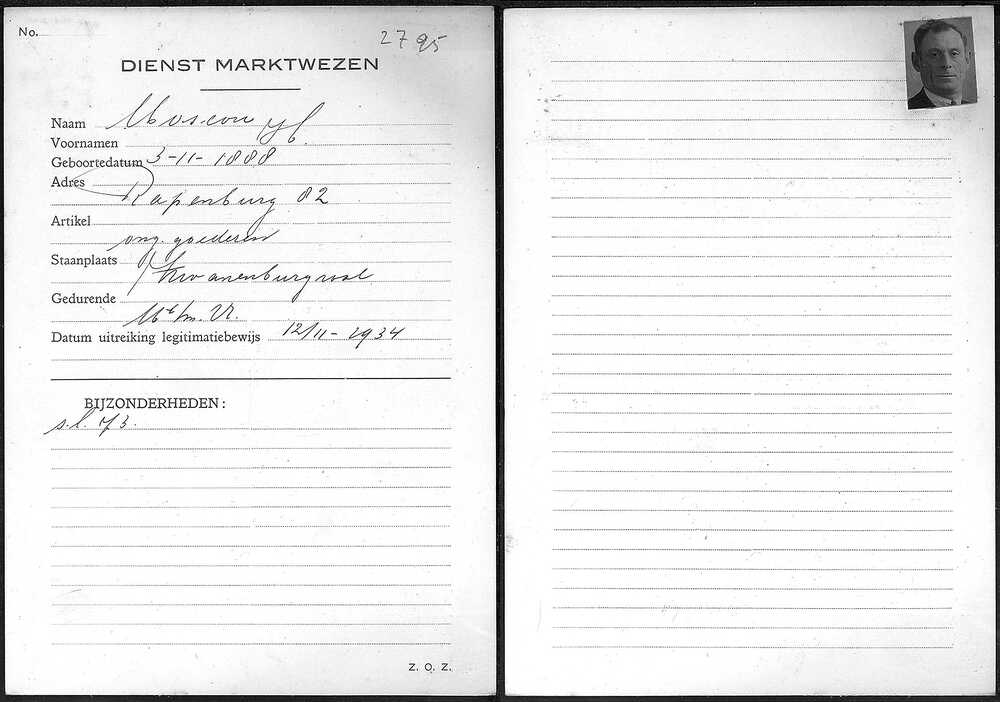 No.
2795
DIENST MARKTWEZEN
Naam Moscou
Voornamen
Geboortedatum 3-11-1888
Adres
Rapenburg 82
Artikel
ong. goederen
Staanplaats
Zwanenburgwal
Gedurende
M t/m. Vr.
Datum uitreiking legitimatiebewijs 12/11-1934
BIJZONDERHEDEN:
s.l.
Z. O. Z.